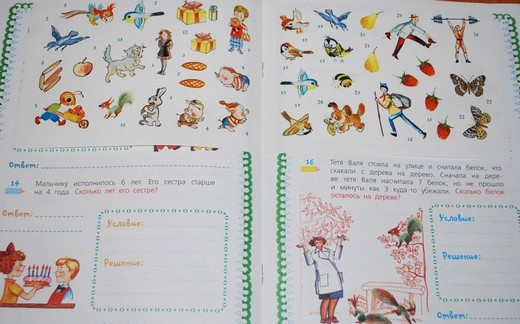 Ответ:
14 Мальчику исполнилось 6 лет. Его сестра старше
на 4 года. Сколько лет его сестре?
Ответ:
Условие:
Решение:
16 Тётя Валя стояла на улице и считала белок, что
скакали с дерева на дерево. Сначала на дере-
ве тётя Валя насчитала 7 белок, но не прошло
и минуты как 3 куда-то убежали. Сколько белок
осталось на дереве?
Условие:
Решение:
Ответ: